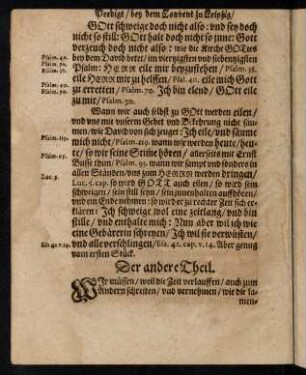 Predigt / bey dem Convent zu Leipzig /
GOtt schweige doch nicht also: vnd sey doch
nicht so still: GOtt halt doch nicht so inne: Gott
verzeuch doch nicht also: wie die Kirche GOttes
Psalm. 40.
bey dem David betet / im viertzigsten vnd siebentzigsten
Psalm. 70.
Psalm: HERR eile mir beyzustehen / Psalm. 38.
Psalm. 38.
eile HERR mir zu helffen / Psal. 40. eile mich Gott
Psalm. 40.
zu erretten / Psalm. 70. Ich bin elend / GOtt eile
Psalm. 70.
zu mir / Psalm. 70.
Wann wir auch selbst zu GOtt werden eilen /
vnd vns mit vnserm Gebet vnd Bekehrung nicht säu-
men / wie David von sich zeuget: Ich eile / vnd säume
Psalm. 119.
mich nicht / Psalm. 119. wann wir werden heute / heu-
te / so wir seine Stime hören / allerseits mit Ernst
Psalm. 95.
Busse thun / Psalm. 95. wann wir sampt vnd sonders in
allen Ständen / vns zum HERRN werden dringen /
Luc. 5.
Luc. 5. cap. so wird GOTT auch eilen / so wird sein
schweigen / sein still seyn / sein innenhalten auffhören /
vnd ein Ende nehmen: so wird er zu rechter Zeit sich er-
klären: Ich schweige wol eine zeitlang / vnd bin
stille / vnd enthalte mich: Nun aber wil ich wie
eine Gebärerin schreyen / Ich wil sie verwüsten /
Esa. 42. v. 14.
vnd alle verschlingen / Esa. 42. cap. v. 14. Aber genug
vom ersten Stück.
Der andere Theil.
Wir müssen / weil die Zeit verlauffen / auch zum
Andern schreiten / vnd vernehmen / wie die la-
men-